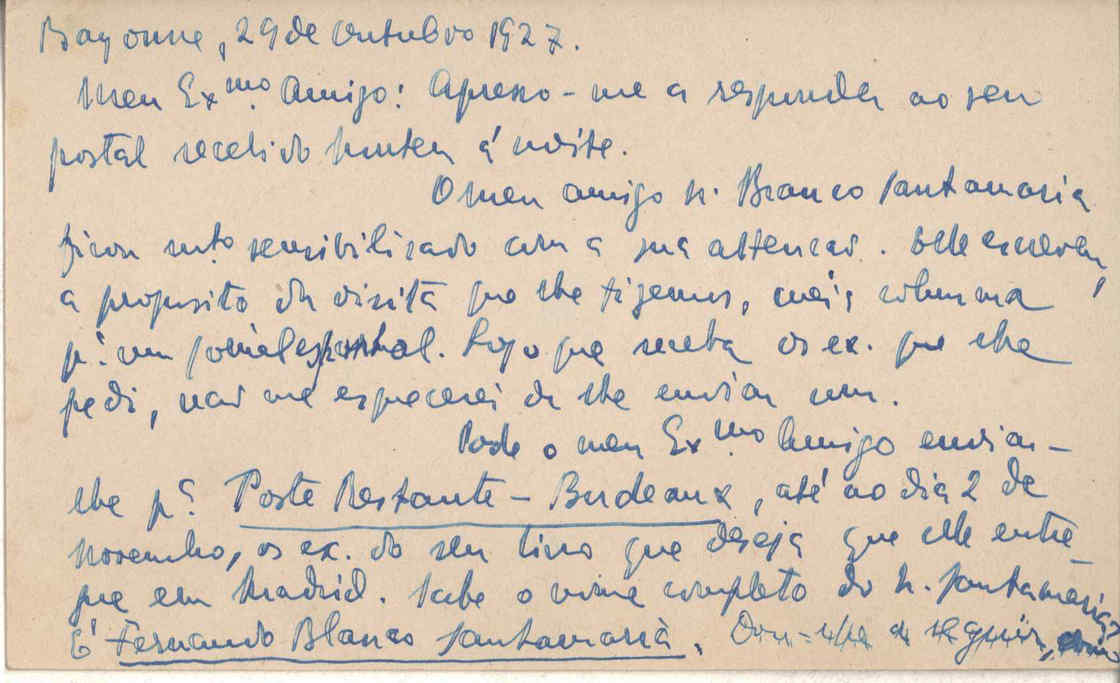 Bayonne, 29 de Outubro 1927.
Meu Exmo. Amigo: Apresso-me a responder ao seu
postal recebido hontem á noite.
O meu amigo sr. Branco Santamaria
ficou mto sensibilisado com a sua attenção. Elle escreveu,
a proposito da visita que lhe fizemos, meia columna
pª. um jornal espanhol. Logo que receba os ex. que lhe
pedi, não me esquecerei de lhe enviar um.
Pode o meu Exmo. Amigo enviar-
lhe pª Poste Restante - Bordeaux, até ao dia 2 de
novembro, os ex. do seu livro que deseja que elle entre-
gue em Madrid. Sabe o nome completo do sr. Santamaria?
É Fernando Blanco Santamaria. Dou-lhe a seguir,